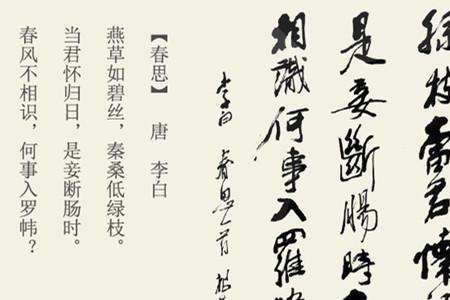 枝當君懷
是妾斷腸時
相識何事入羅
李白 春思一首
【春思】 唐 李白
燕草如碧丝，秦桑低绿枝。
当君怀归日，是妾断肠时。
春风不相识，何事入罗帏？